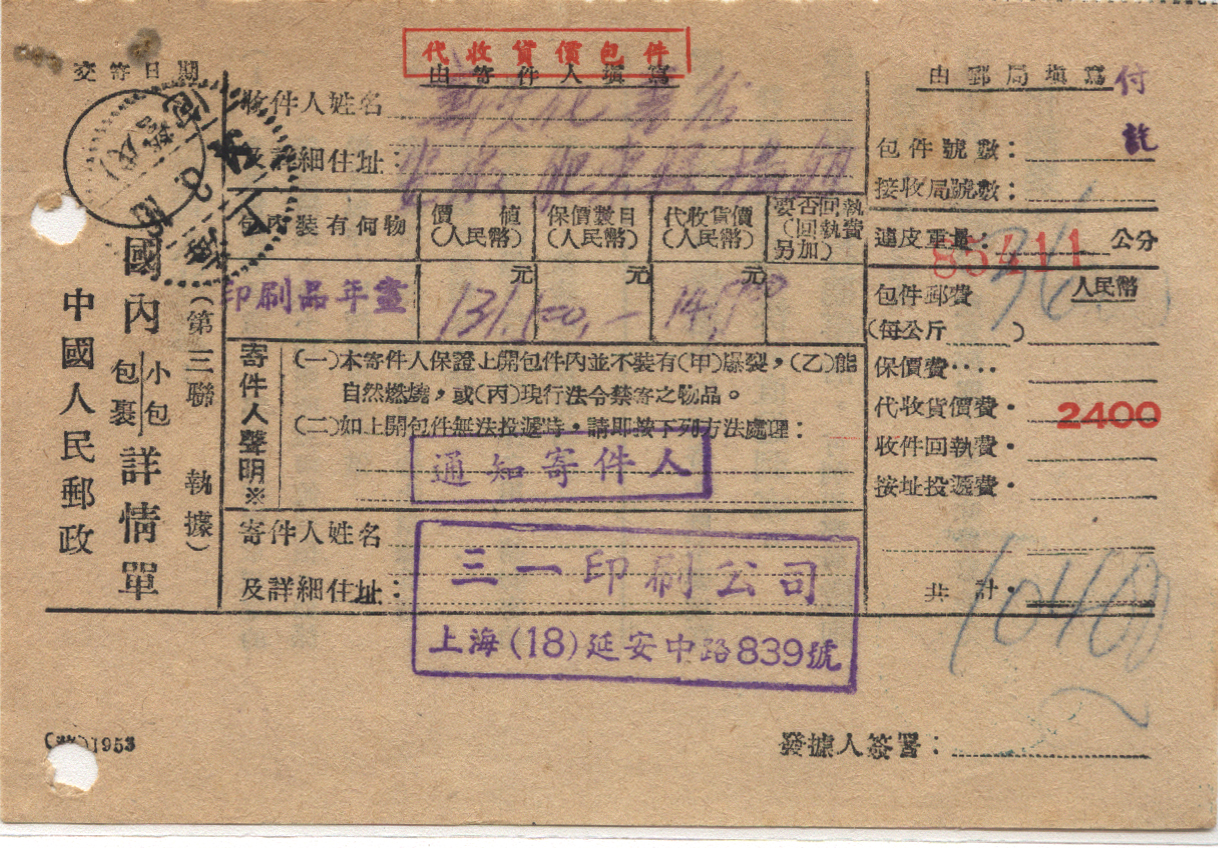 代收貨價包件
交寄日期
由寄件人填寫
由郵局填寫
付訖
收件人姓名
新文化書店
及詳細住址：
安徽 肥東
包件號數：
接收局號數：
連皮重量： 公分
85411
包內裝有何物
價值（人民幣）
保價數目（人民幣）
代收貨價（人民幣）
要否回執（回執費另加）
元
元
元
印刷品年畫
131,100.-
包件郵費
人民幣
（每公斤 ）
保價費····
代收貨價費·
2400
收件回執費·
按址投遞費·
共計·
10400
寄件人聲明※
(一)本寄件人保證上開包件內並不裝有(甲)爆裂，(乙)能
自然燃燒，或(丙)現行法令禁寄之物品。
(二)如上開包件無法投遞時·請即按下列方法處理：
通知寄件人
寄件人姓名
及詳細住址：
三一印刷公司
上海(18)延安中路839號
中國人民郵政
國內包裹小包詳情單
（第三聯 執據）
發據人簽署：
1953